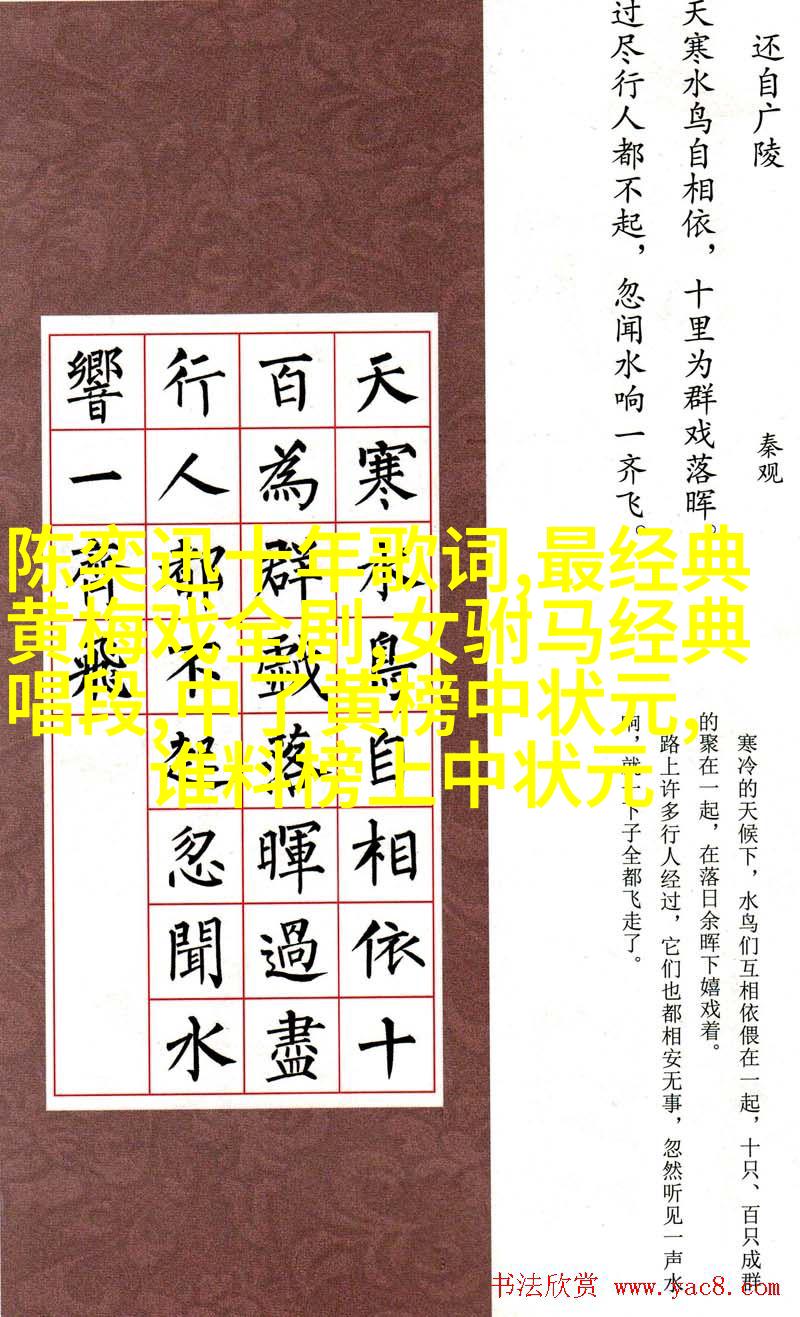 还自广陵
秦观
天寒水鸟自相依，十里为群戏落晖。
过尽行人都不起，忽闻水响一齐飞。
天寒水鳥自相依十
百為群戲落暉過盡
行人都不起忽聞水
響一齊飛
陈奕迅十年歌词,最经典
黄梅戏全剧,女驸马经典
唱段,中了黄榜中状元,
谁料榜上中状元
寒冷的天候下，水鸟们互相依偎在一起，十只、百只成群
的聚在一起，在落日余晖下嬉戏着。
路上许多行人经过，它们也都相安无事，忽然听见一声水
响，就一下子全都飞走了。
书法欣赏 www.yac8.com